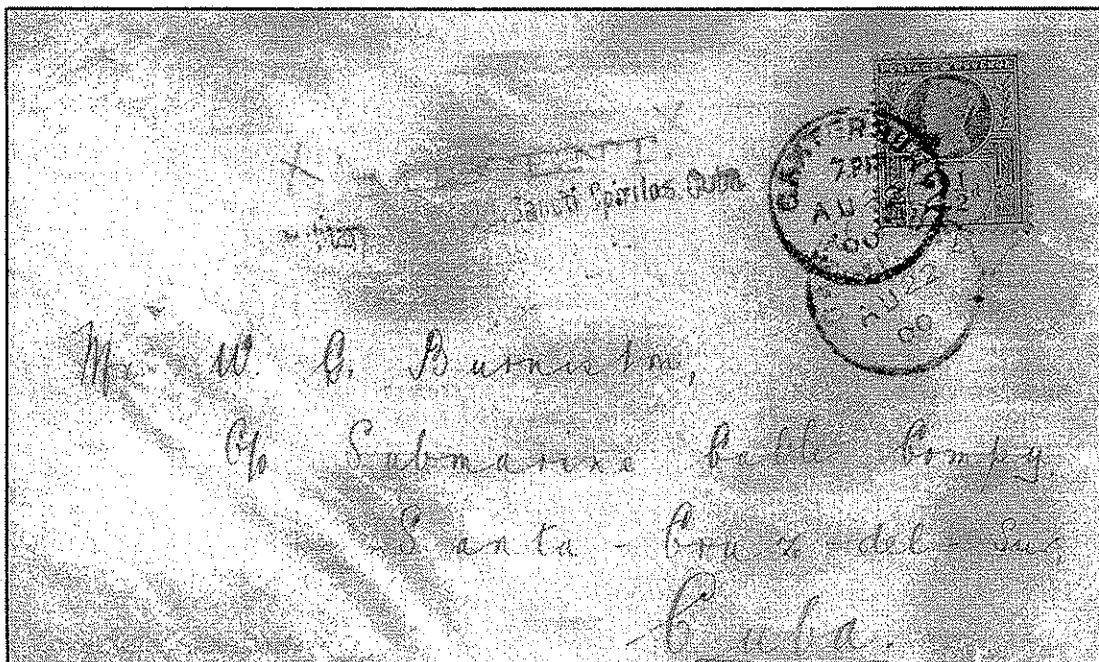 Sancti Spiritus. Cuba
CANTERBURY
7 PM
AU
00
2 1/2
AU 22
00
Mr. W. G. Burniston,
C/o Submarine Cable Compy.
Santa-Cruz-del-Sur
Cuba.